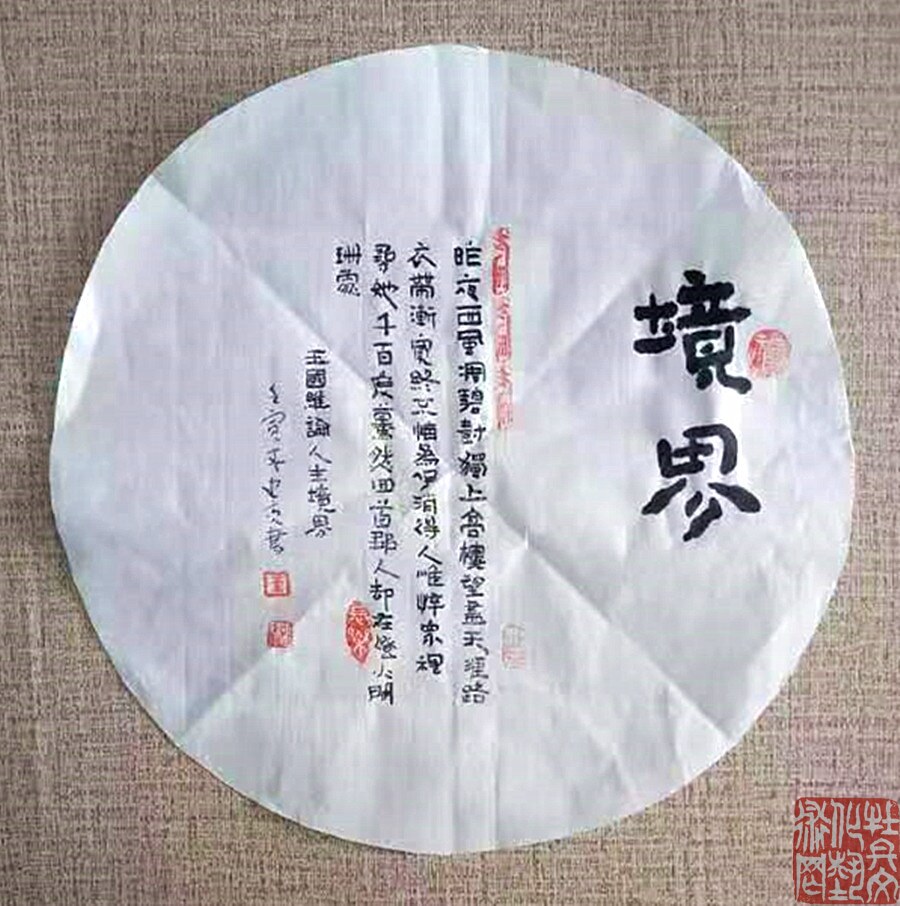 境界
昨夜西風凋碧樹獨上高樓望盡天涯路
衣帶漸寬終不悔為伊消得人憔悴眾裡
尋她千百度驀然回首那人却在燈火闌
珊處
王國維論人生境界
壬寅春書